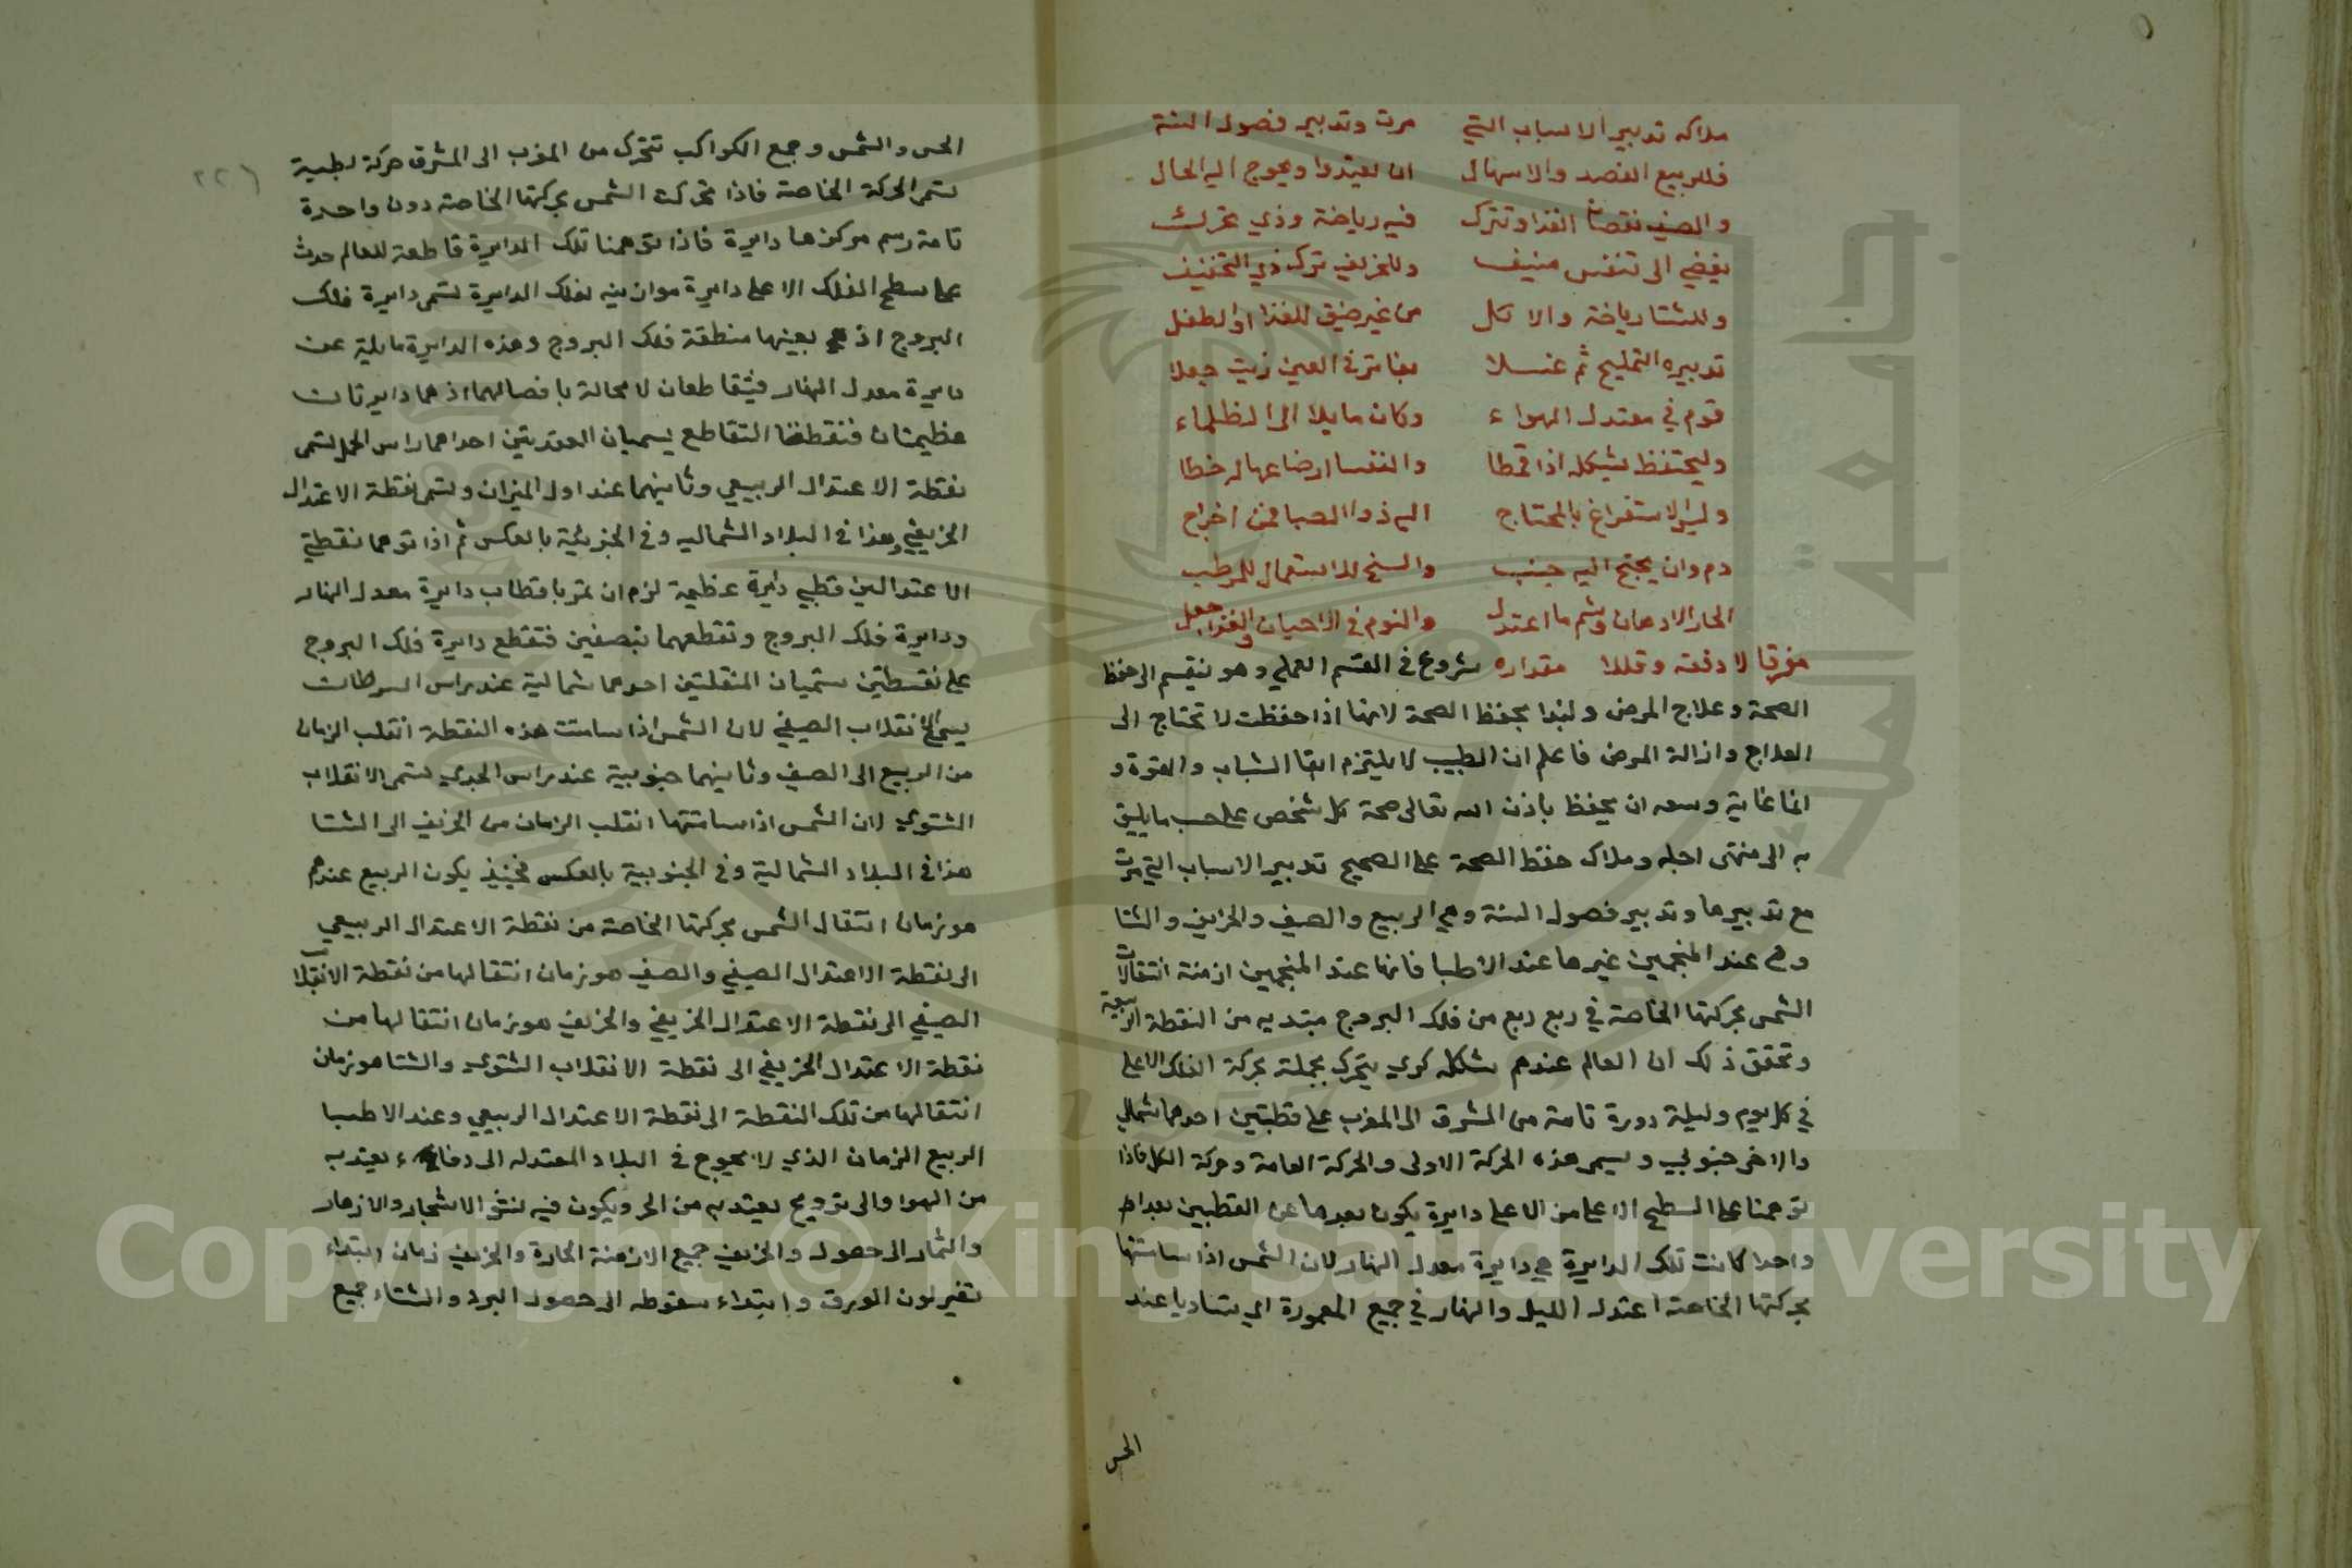 ملاكه تدبير الاسباب التي مرت وتدبير فصول السنة
فللربيع الفصد والاسهال ان يعتدوا ويحوج اليه الحال
والصيف نقصان الغذا وتترك فيه رياضة وذي تحرك
يفضي الى تنفس منيف وللخريف ترك ذي التجفيف
وللشتا رياضة والاكل من غير ضيق للغذا والطفل
تدبيره التمليح ثم غسلا بفاتر في العين زيت جعلا
قوم في معتدل الهواء وكان مايلا الى الظلماء
وليحتفظ بشكله اذا قمطا والنفسا ارضاعها له خطا
وليس الاستفراغ بالمحتاج اليه ذوا الصبا فمن اخراج
دم وان يحتج اليه جنب والشيخ له استعمال للمرطب
الحار الادهان وشم ما اعتدل والنوم في الاحيان والغذا جعل
مفرقا لا دفعة وقللا مقداره شروع في القسم العملي وهو ينقسم الى حفظ
الصحة وعلاج المرض ولنبدا بحفظ الصحة لانها اذا حفظت لا تحتاج الى
العلاج وازالة المرض فاعلم ان الطبيب لا يلتزم ابقا الشباب والقوة و
انما غاية وسعه ان يحفظ باذن الله تعالى صحة كل شخص على حسب ما يليق
به الى منتهى اجله وملاك حفظ الصحة على الصحيح تدبير الاسباب التي مرت
مع تدبيرها وتدبير فصول السنة وهي الربيع والصيف والخريف والشتا
وهي عند المنجمين غيرها عند الاطبا فانها عند المنجمين ازمنة انتقالات
الشمس بحركتها الخاصة في ربع ربع من فلك البروج مبتديه من النقطة الربيعية
وتحقق ذلك ان العالم عندهم شكله كري يتحرك بجملة بحركة الفلك الاعلى
في كل يوم وليلة دورة تامة من المشرق الى المغرب على قطبتين احدهما شمالي
والاخر جنوبي ويسمى هذه الحركة الاولى والحركة العامة وحركة الكل فاذا
توهمنا على السطح الاعلى من الاعلى دايرة يكون بعدها عن القطبين بعدا
واحدا كانت تلك الدايرة هي دايرة معدل النهار لان الشمس اذا سامتتها
بحركتها الخاصة اعتدل الليل والنهار في جميع المعمورة اي تساويا عند
الحس
٢٢٦
الحس والشمس وجميع الكواكب تتحرك من المغرب الى المشرق حركة بطيية
تسمى الحركة الخاصة فاذا تحركت الشمس بحركتها الخاصة دون واحدة
تامة رسم مركزها دايرة فاذا توهمنا تلك الدايرة قاطعة للعالم حدث
على سطح الفلك الاعلى دايرة موازينه لفلك الدايرة تسمى دايرة فلك
البروج اذ هي بعينها منطقة فلك البروج وهذه الدايرة مايلية عن
دايرة معدل النهار فيتقاطعان لا محالة بافصالهما اذ هما دايرتان
عظيمتان فنقطتا التقاطع يسميان العقدتين احداهما راس الحمل تسمى
نقطة الاعتدال الربيعي وثانيهما عند اول الميزان وتسمى نقطة الاعتدال
الخريفي وهذا في البلاد الشماليه وفي الجنوبية بالعكس ثم اذا توهما نقطتي
الاعتدالين قطبي دايرة عظيمة لزم ان تمر باقطاب دايرة معدل النهار
ودايرة فلك البروج وتقطعهما بنصفين فتقطع دايرة فلك البروج
على نقطتين ستميان المنقلبتين احدهما شمالية عند راس السرطان
يسمى الانقلاب الصيفي لان الشمس اذا سامتت هذه النقطة انقلب الزمان
من الربيع الى الصيف وثانيهما جنوبية عند راس الجدي تسمى الانقلاب
الشتوي لان الشمس اذا سامتتها انقلب الزمان من الخريف الى الشتا
هذا في البلاد الشمالية وفي الجنوبية بالعكس فحينيذ يكون الربيع عندهم
هو زمان انتقال الشمس بحركتها الخاصة من نقطة الاعتدال الربيعي
الى نقطة الاعتدال الصيفي والصيف هو زمان انتقالها من نقطة الانقلاب
الصيفي الى نقطة الاعتدال الخريفي والخريف هو زمان انتقالها من
نقطة الاعتدال الخريفي الى نقطة الانقلاب الشتوي والشتا هو زمان
انتقالها من تلك النقطة الى نقطة الاعتدال الربيعي وعند الاطبا
الربيع الزمان الذي لا يحوج في البلاد المعتدله الى دفاء يعتد به
من الهوا والى ترويح يعتد به من الحر ويكون فيه نشو الاشجار والازهار
والثمار الى حصول والخريف جميع الازمنة الحارة والخريف زمان ابتداء
تغير لون الورق وابتداء سقوطه الى حصول البرد والشتاء جميع
جامعة الملك سعود
Copyright © King Saud University